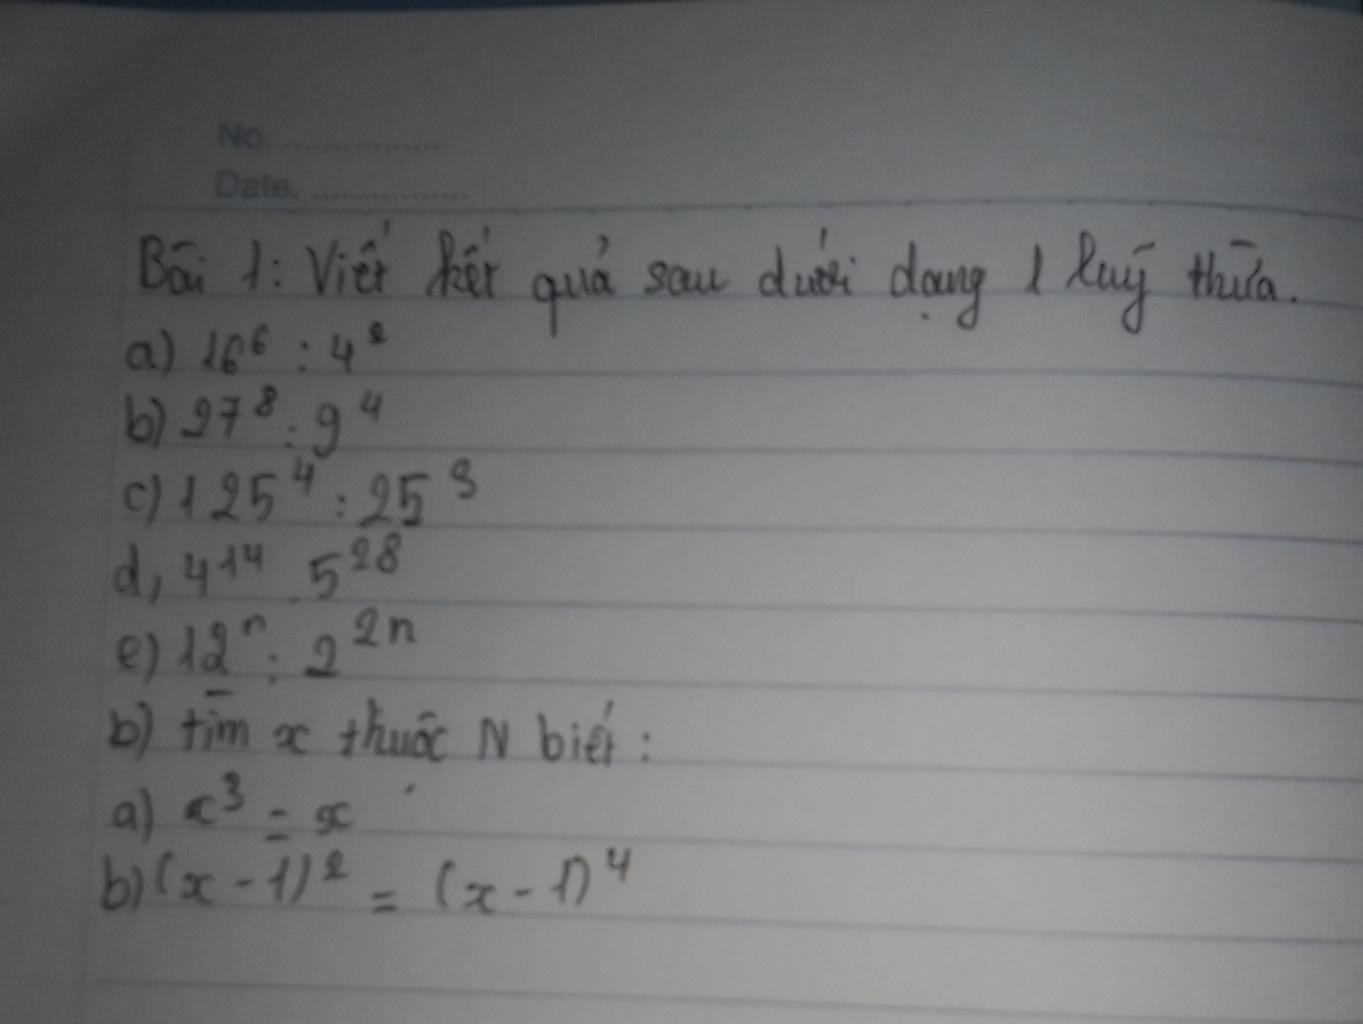 No. ................
Date. ................
Bài 1: Viết kết quả sau dưới dạng 1 luỹ thừa.
a) 16⁶ : 4²
b) 27⁸ : 9⁴
c) 125⁴ : 25³
d, 4¹⁴ . 5²⁸
e) 12ⁿ : 2²ⁿ
b) tìm x thuộc N biết :
a) x³ = x
b) (x - 1)² = (x - 1)⁴